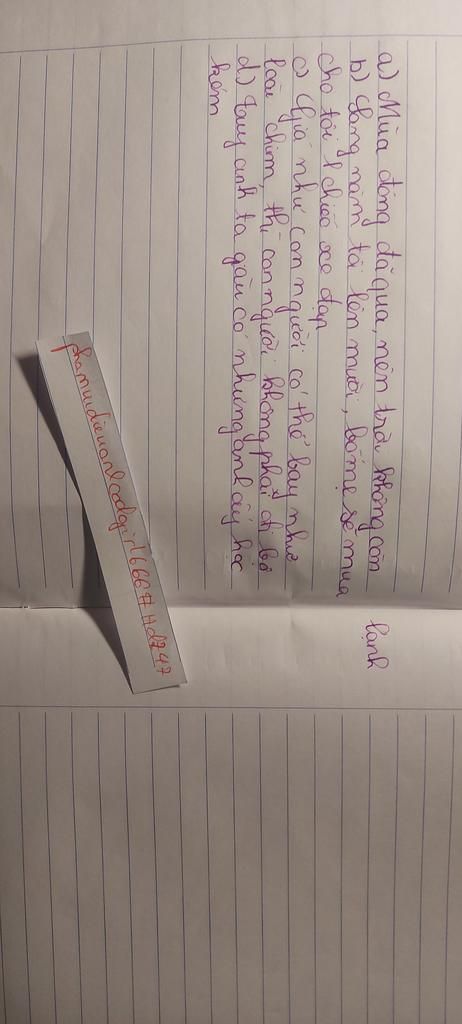 a) Mùa đông đã qua, nên trời không còn lạnh
b) Sang năm tôi lên mười, bố mẹ sẽ mua
cho tôi 1 chiếc xe đạp
c) Giá như con người có thể bay như
loài chim, thì con người không phải đi bộ
d) Tuy anh ta giàu có, nhưng anh ấy học
kém
phamuidieuanhcodgirl666#Hdz47